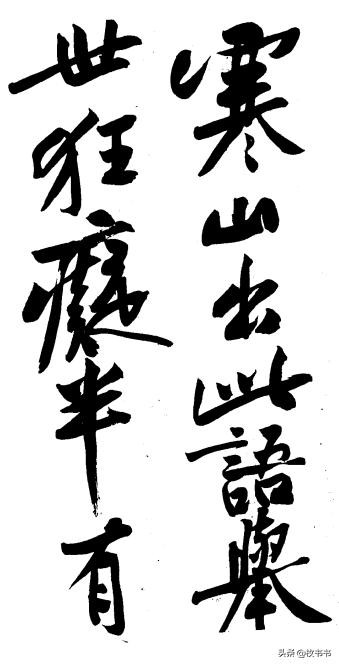 寒山出此語舉
世狂癡半有
头条@牧书书